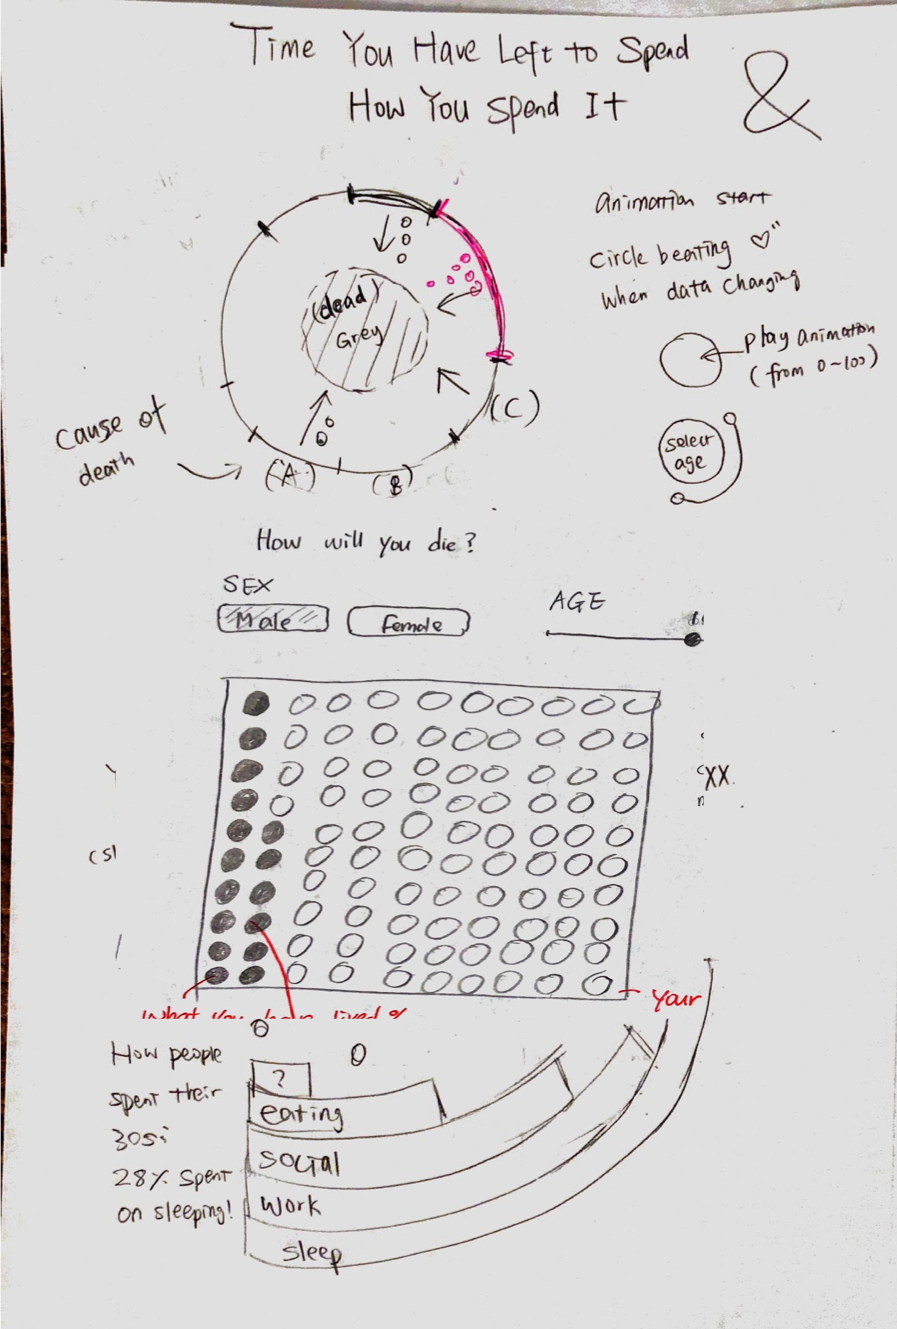 Time You Have Left to Spend
&
How You Spend It
animation start
circle beating
when data changing
(dead)
Grey
play animation
(from 0~100)
(C)
cause of
death
select
age
(A)
(B)
How will you die?
SEX
AGE
Male
Female
XX.
Your
What you
lived %
How people
spent their
30s:
28% spent
on sleeping!
?
eating
social
work
sleep